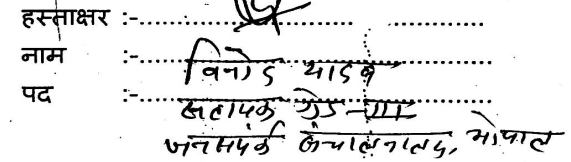 हस्ताक्षर :-
नाम :- विनोद यादव
पद :- सहायक ग्रेड-III
जनसंपर्क संचालनालय, भोपाल